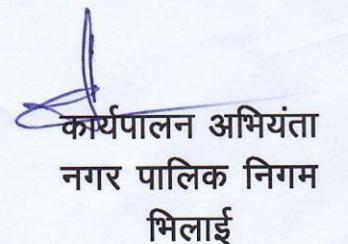 कार्यपालन अभियंता
नगर पालिक निगम
भिलाई